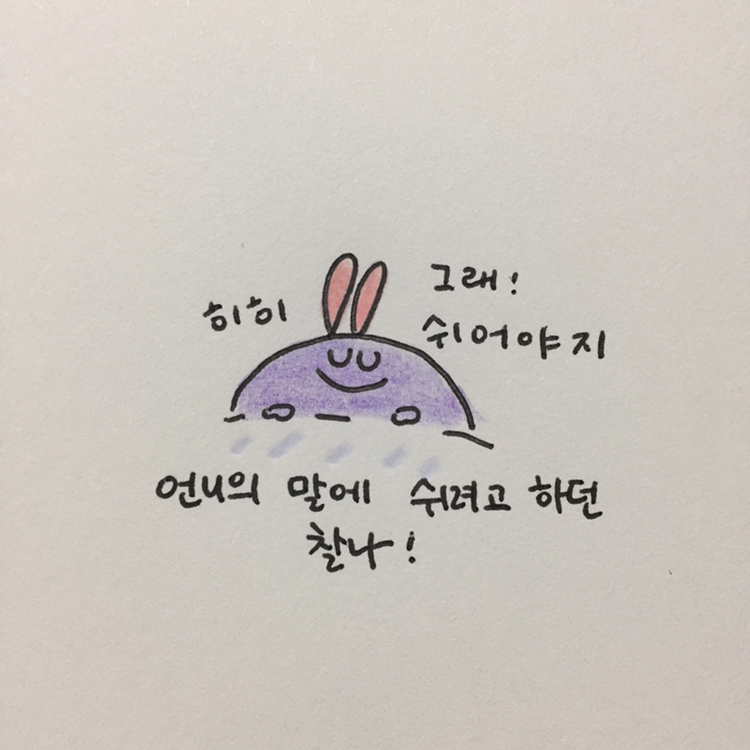 히히
그래!
쉬어야지
언니의 말에 쉬려고 하던
찰나!